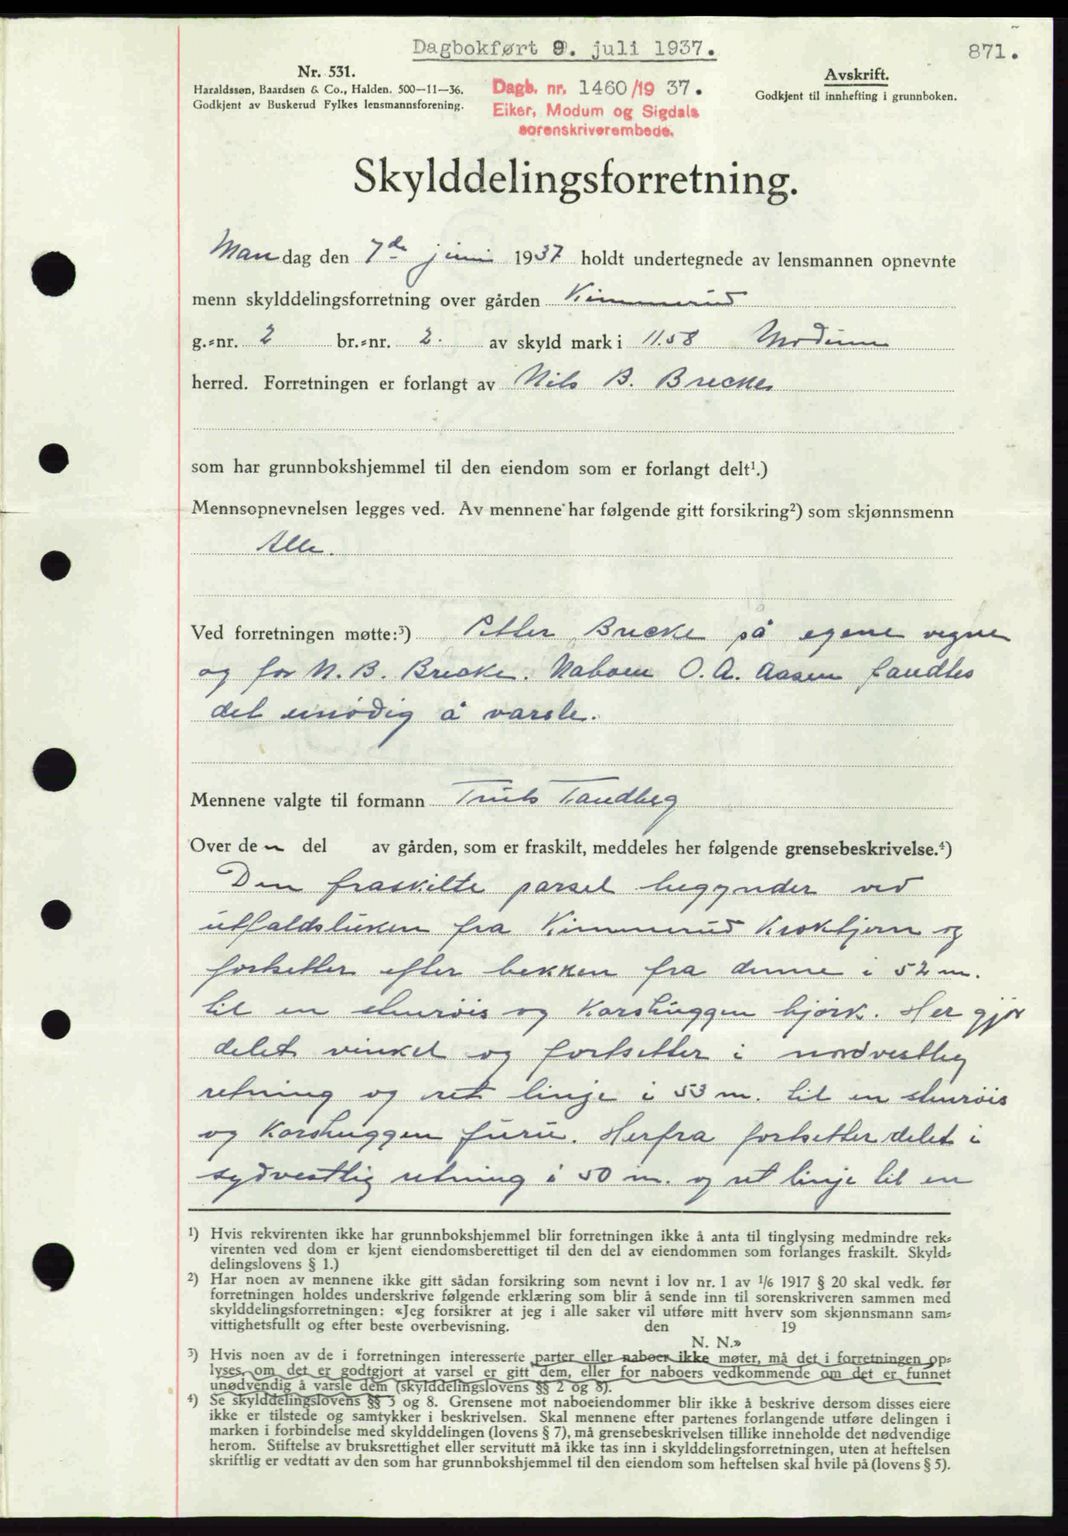 Dagbokført 9. juli 1937.
871.
Nr. 531.
Haraldssøn, Baardsen & Co., Halden. 500—11—36.
Godkjent av Buskerud Fylkes lensmannsforening.
Dagb. nr. 1460/19 37.
Eiker, Modum og Sigdals
sorenskriverembede.
Avskrift.
Godkjent til innhefting i grunnboken.
Skylddelingsforretning.
Mandag den 7de juni 1937 holdt undertegnede av lensmannen opnevnte
menn skylddelingsforretning over gården Kimmerud
g.=nr. 2 br.=nr. 2. av skyld mark i 11.58 Modum
herred. Forretningen er forlangt av Nils B. Brecke
som har grunnbokshjemmel til den eiendom som er forlangt delt¹.)
Mennsopnevnelsen legges ved. Av mennene har følgende gitt forsikring²) som skjønnsmenn
Alle.
Ved forretningen møtte:³) Petter Brecke på egene vegne
og for N. B. Brecke. Naboen O. A. Aasen fandtes
det unødig å varsle.
Mennene valgte til formann Truls Tandberg
Over den del av gården, som er fraskilt, meddeles her følgende grensebeskrivelse.⁴)
Den fraskilte parsel begynder ved
utfaldsluken fra Kimmerud Kroktjern og
fortsetter efter bekken fra denne i 52 m.
til en stenrøis og korshuggen bjørk. Her gjør
delet vinkel og fortsetter i nordvestlig
retning og ret linje i 53 m. til en stenrøis
og korshuggen furu. Herfra fortsetter delet i
sydvestlig retning i 50 m. og ret linje til en
¹) Hvis rekvirenten ikke har grunnbokshjemmel blir forretningen ikke å anta til tinglysing medmindre rek=
virenten ved dom er kjent eiendomsberettiget til den del av eiendommen som forlanges fraskilt. Skyld=
delingslovens § 1.)
²) Har noen av mennene ikke gitt sådan forsikring som nevnt i lov nr. 1 av 1/6 1917 § 20 skal vedk. før
forretningen holdes underskrive følgende erklæring som blir å sende inn til sorenskriveren sammen med
skylddelingsforretningen: «Jeg forsikrer at jeg i alle saker vil utføre mitt hverv som skjønnsmann sam=
vittighetsfullt og efter beste overbevisning. den 19
N. N.»
³) Hvis noen av de i forretningen interesserte parter eller naboer ikke møter, må det i forretningen op=
lyses, om det er godtgjort at varsel er gitt dem, eller for naboers vedkommende om det er funnet
unødvendig å varsle dem (skylddelingslovens §§ 2 og 8).
⁴) Se skylddelingslovens §§ 3 og 8. Grensene mot naboeiendommer blir ikke å beskrive dersom disses eiere
ikke er tilstede og samtykker i beskrivelsen. Skal mennene efter partenes forlangende utføre delingen i
marken i forbindelse med skylddelingen (lovens § 7), må grensebeskrivelsen tillike inneholde det nødvendige
herom. Stiftelse av bruksrettighet eller servitutt må ikke tas inn i skylddelingsforretningen, uten at heftelsen
skriftlig er vedtatt av den som har grunnbokshjemmel til den eiendom som heftelsen skal hvile på (lovens § 5).